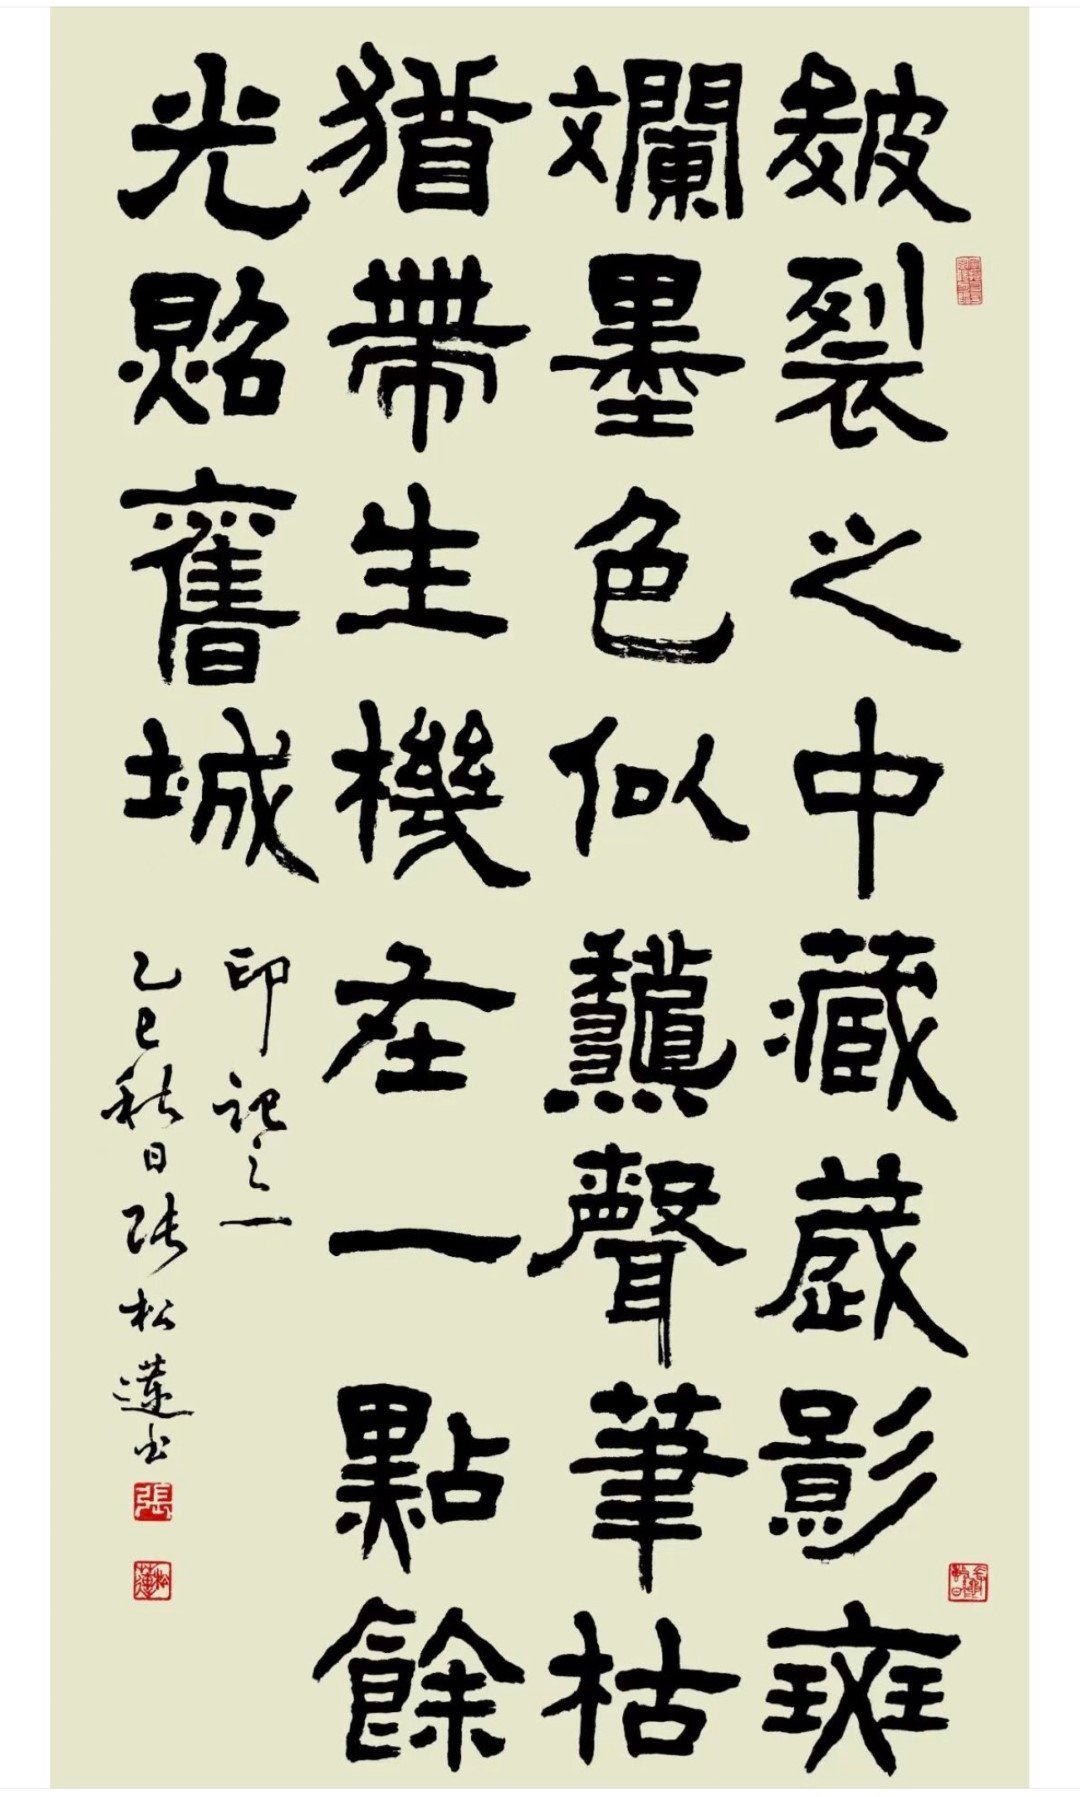 皴裂之中藏歲影斑
斕墨色似聲筆枯
猶帶生機在一點餘
光照舊城
印記之一
乙巳秋日張松蓮書
張
松蓮